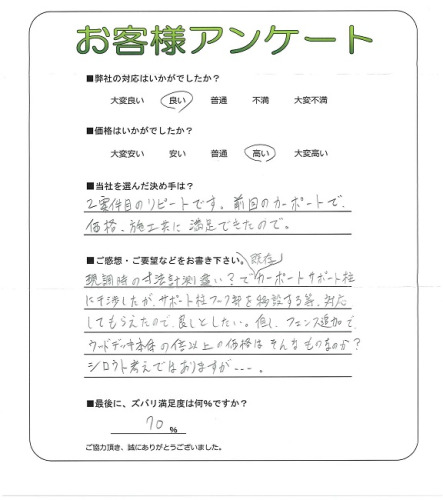 お客様アンケート
■弊社の対応はいかがでしたか？
大変良い 良い 普通 不満 大変不満
■価格はいかがでしたか？
大変安い 安い 普通 高い 大変高い
■当社を選んだ決め手は？
2案件目のリピートです。前回のカーポートで、
価格、施工共に満足できたので。
■ご感想・ご要望などをお書き下さい。
既存
現調時の寸法計測違い？でカーポートサポート柱
に干渉したが、サポート柱フーク部を移設する等、対応
してもらえたので、良しとしたい。但し、フェンス追加で、
ウッドデッキ本体の倍以上の価格はそんなものなのか？
シロウト考えではありますが---。
■最後に、ズバリ満足度は何%ですか？
70 %
ご協力頂き、誠にありがとうございました。